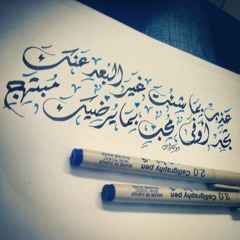 عذب بما شئت غير البعد عنك
تجد أوفى محب بما يرضيك مبتهج
2.0 Calligraphy pen
3.0 Calligraphy pen